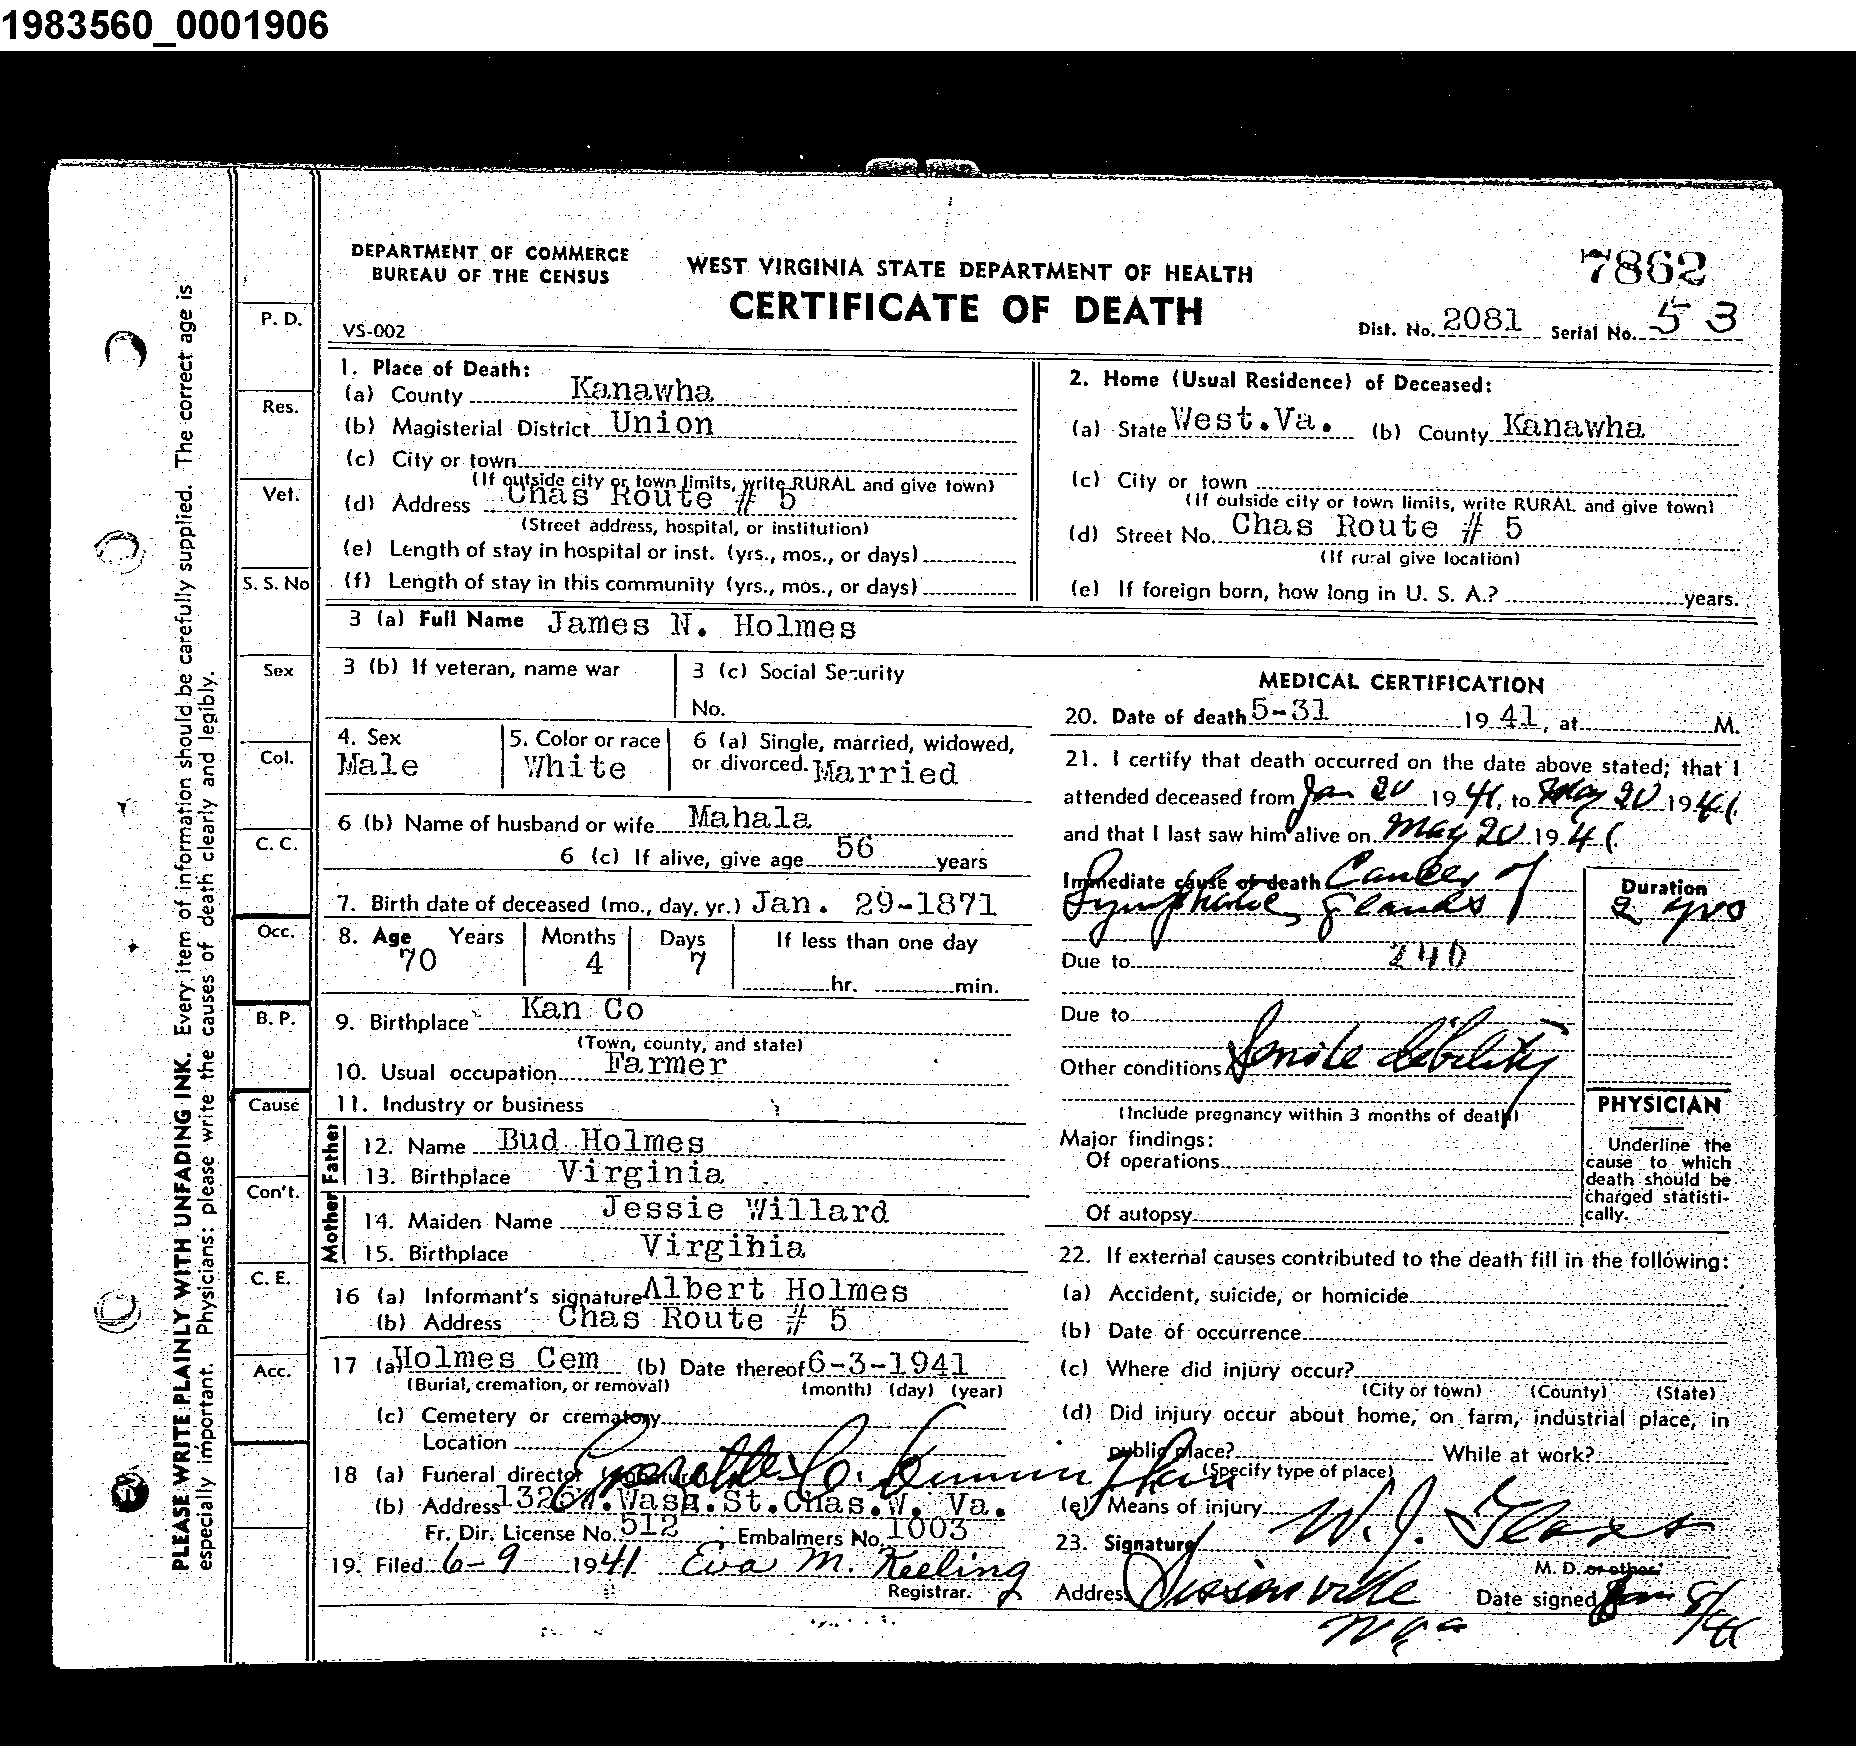 1983560_0001906
DEPARTMENT OF COMMERCE
BUREAU OF THE CENSUS
VS-002
WEST VIRGINIA STATE DEPARTMENT OF HEALTH
CERTIFICATE OF DEATH
7862
Dist. No. 2081 Serial No. 53
PLEASE WRITE PLAINLY WITH UNFADING INK. Every item of information should be carefully supplied. The correct age is
especially important. Physicians: please write the causes of death clearly and legibly.
P. D.
Res.
Vet.
S. S. No
Sex
Col.
C. C.
Occ.
B. P.
Cause
Con't.
C. E.
Acc.
1. Place of Death:
(a) County Kanawha
(b) Magisterial District Union
(c) City or town
(If outside city or town limits, write RURAL and give town)
(d) Address Chas Route # 5
(Street address, hospital, or institution)
(e) Length of stay in hospital or inst. (yrs., mos., or days)
(f) Length of stay in this community (yrs., mos., or days)
2. Home (Usual Residence) of Deceased:
(a) State West.Va. (b) County Kanawha
(c) City or town
(If outside city or town limits, write RURAL and give town)
(d) Street No. Chas Route # 5
(If rural give location)
(e) If foreign born, how long in U. S. A.? years.
3 (a) Full Name James N. Holmes
3 (b) If veteran, name war
3 (c) Social Security
No.
4. Sex
Male
5. Color or race
White
6 (a) Single, married, widowed,
or divorced. Married
6 (b) Name of husband or wife Mahala
6 (c) If alive, give age 56 years
7. Birth date of deceased (mo., day, yr.) Jan. 29-1871
8. Age Years Months Days If less than one day
70 4 7 hr. min.
9. Birthplace Kan Co
(Town, county, and state)
10. Usual occupation Farmer
11. Industry or business
Father
12. Name Bud Holmes
13. Birthplace Virginia
Mother
14. Maiden Name Jessie Willard
15. Birthplace Virginia
16 (a) Informant's signature Albert Holmes
(b) Address Chas Route # 5
17 (a) Holmes Cem (b) Date thereof 6-3-1941
(Burial, cremation, or removal) (month) (day) (year)
(c) Cemetery or crematory
Location
18 (a) Funeral director C.
(b) Address 1326 W. Wash. St. Chas. W. Va.
Fr. Dir. License No. 512 Embalmers No. 1003
19. Filed 6-9 1941 Eva M. Keeling
Registrar.
MEDICAL CERTIFICATION
20. Date of death 5-31 1941, at M.
21. I certify that death occurred on the date above stated; that I
attended deceased from Jan 20 1941, to May 20 1941
and that I last saw him alive on May 20 1941.
Immediate cause of death Cancer of
Lymphatic glands
Duration
2 yrs
Due to 240
Due to
Other conditions Senile debility
(Include pregnancy within 3 months of death)
Major findings:
Of operations
Of autopsy
PHYSICIAN
Underline the
cause to which
death should be
charged statisti-
cally.
22. If external causes contributed to the death fill in the following:
(a) Accident, suicide, or homicide
(b) Date of occurrence
(c) Where did injury occur?
(City or town) (County) (State)
(d) Did injury occur about home, on farm, industrial place, in
public place? While at work?
(Specify type of place)
(e) Means of injury
23. Signature W. J.
M. D. or other
Address Sissonville Date signed
W Va